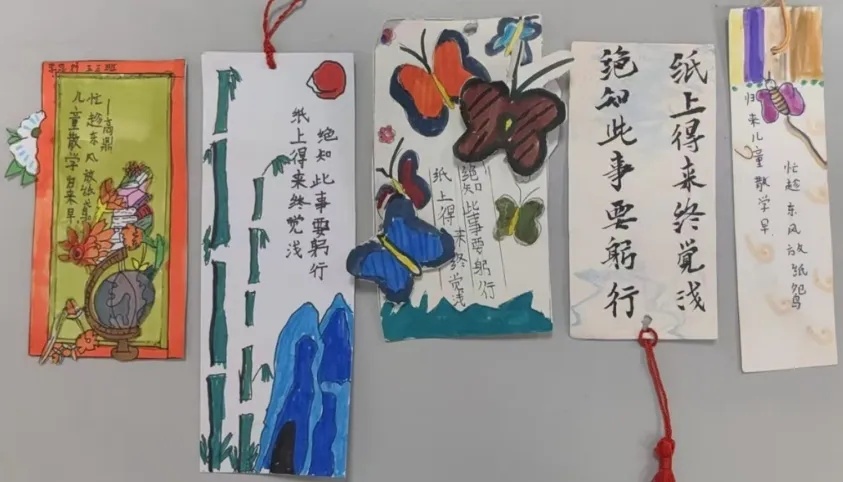 儿童散学归来早
忙趁东风放纸鸢
—高鼎
纸上得来终觉浅
绝知此事要躬行
纸上得来终觉浅
绝知此事要躬行
纸上得来终觉浅
绝知此事要躬行
归来儿童散学早
忙趁东风放纸鸢